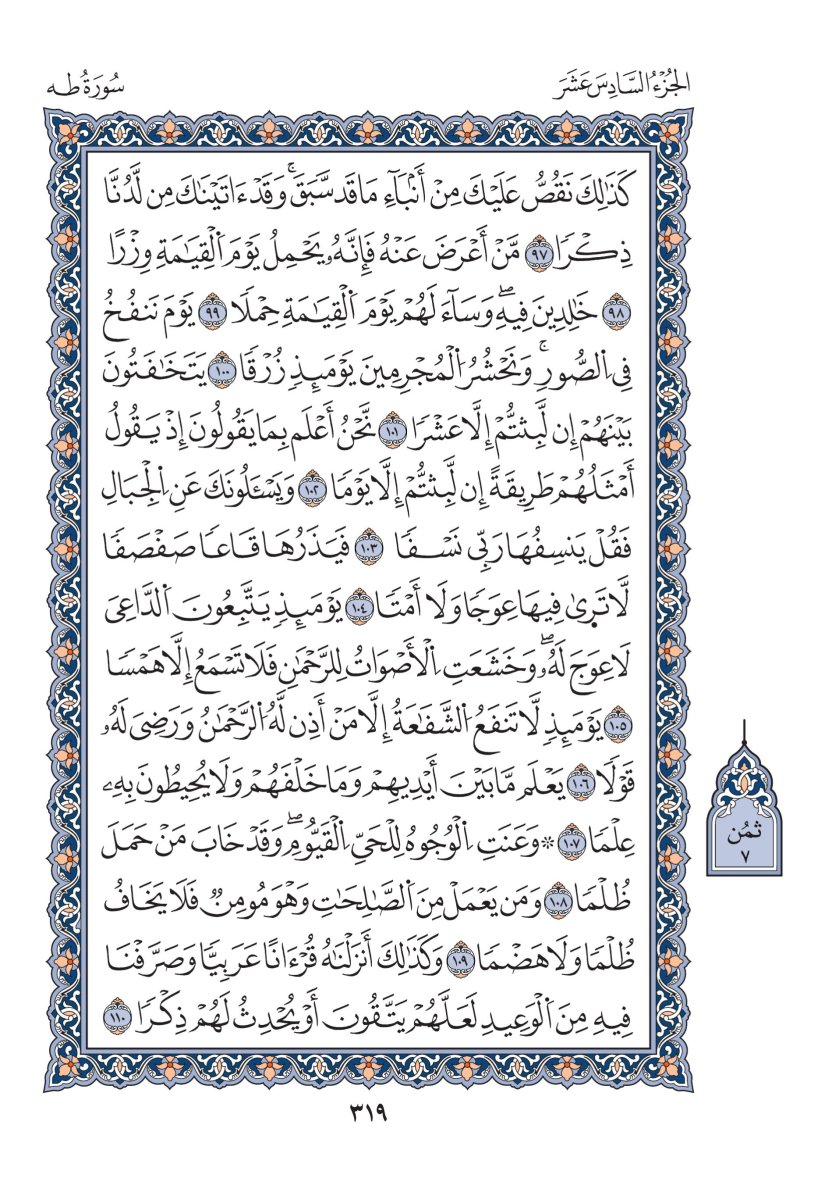 الجُزْءُ السَّادِسَ عَشَرَ
سُورَةُ طه
كَذَٰلِكَ نَقُصُّ عَلَيْكَ مِنْ أَنۢبَآءِ مَا قَد سَّبَقَۚ وَقَدْ ءَاتَيْنَٰكَ مِن لَّدُنَّا
ذِكْرًا ٩٧ مَّنْ أَعْرَضَ عَنْهُ فَإِنَّهُۥ يَحْمِلُ يَوْمَ اَ۬لْقِيَٰمَةِ وِزْرًا
٩٨ خَٰلِدِينَ فِيهِۖ وَسَآءَ لَهُمْ يَوْمَ اَ۬لْقِيَٰمَةِ حِمْلًا ٩٩ يَوْمَ نَنفُخُ
فِے اِ۬لصُّورِۚ وَنَحْشُرُ اُ۬لْمُجْرِمِينَ يَوْمَئِذٖ زُرْقًا ١٠٠ يَتَخَٰفَتُونَ
بَيْنَهُمْ إِن لَّبِثتُّمْ إِلَّا عَشْرًا ١٠١ نَّحْنُ أَعْلَم بِمَا يَقُولُونَ إِذْ يَقُولُ
أَمْثَلُهُمْ طَرِيقَةً إِن لَّبِثتُّمْ إِلَّا يَوْمًا ١٠٢ وَيَسْـَٔلُونَكَ عَنِ اِ۬لْجِبَالِ
فَقُلْ يَنسِفُهَا رَبِّے نَسْفًا ١٠٣ فَيَذَرُهَا قَاعًا صَفْصَفًا
لَّا تَرٜىٰ فِيهَا عِوَجًا وَلَا أَمْتًا ١٠٤ يَوْمَئِذٖ يَتَّبِعُونَ اَ۬لدَّاعِيَ
لَا عِوَجَ لَهُۥۖ وَخَشَعَتِ اِ۬لْأَصْوَاتُ لِلرَّحْمَٰنِ فَلَا تَسْمَعُ إِلَّا هَمْسًا
١٠٥ يَوْمَئِذٖ لَّا تَنفَعُ اُ۬لشَّفَٰعَةُ إِلَّا مَنْ أَذِن لَّهُ اُ۬لرَّحْمَٰنُ وَرَضِيَ لَهُۥ
قَوْلًا ١٠٦ يَعْلَم مَّا بَيْنَ أَيْدِيهِمْ وَمَا خَلْفَهُمْ وَلَا يُحِيطُونَ بِهِۦ
عِلْمًا ١٠٧ ۞ وَعَنَتِ اِ۬لْوُجُوهُ لِلْحَيِّ اِ۬لْقَيُّومِۖ وَقَدْ خَابَ مَنْ حَمَلَ
ظُلْمًا ١٠٨ وَمَن يَعْمَلْ مِنَ اَ۬لصَّٰلِحَٰتِ وَهْوَ مُومِنٞ فَلَا يَخَافُ
ظُلْمًا وَلَا هَضْمًا ١٠٩ وَكَذَٰلِكَ أَنزَلْنَٰهُ قُرْءَانًا عَرَبِيًّا وَصَرَّفْنَا
فِيهِ مِنَ اَ۬لْوَعِيدِ لَعَلَّهُمْ يَتَّقُونَ أَوْ يُحْدِثُ لَهُمْ ذِكْرًا ١١٠
ثمُن
٧
٣١٩